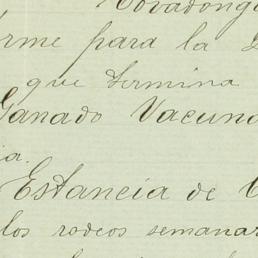 Covadonga
rme para la
que termina
Ganado Vacuno
ia.
Estancia de
los rodeos semanar